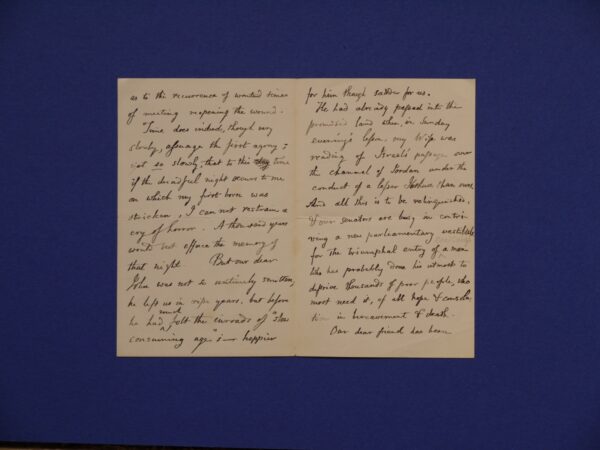 as to the recurrence of wonted times
of meeting reopening the wound.
Time does indeed, though very
slowly, assuage the first agony;
yet so slowly, that to this day time
if the dreadful night occurs to me
on which my first born was
stricken, I can not restrain a
cry of horror. A thousand years
would not efface the memory of
that night. But our dear
John was not so untimely smitten,
he left us in ripe years, but before
he had much felt the inroads of "slow
consuming age" :— happier
for him though sadder for us.
He had already passed into the
promised land when, in Sunday
evening's lesson, my Wife was
reading of Israel's passage over
the channel of Jordan under the
conduct of a lesser Joshua than ours.
And all this is to be relinquished,
& our senators are busy in contri-
ving a new parliamentary vestibule
for the triumphal entry of a man
who has probably done his utmost to
deprive thousands of poor people, who
most need it, of all hope & consola-
tion in bereavement & death.
Our dear friend has been